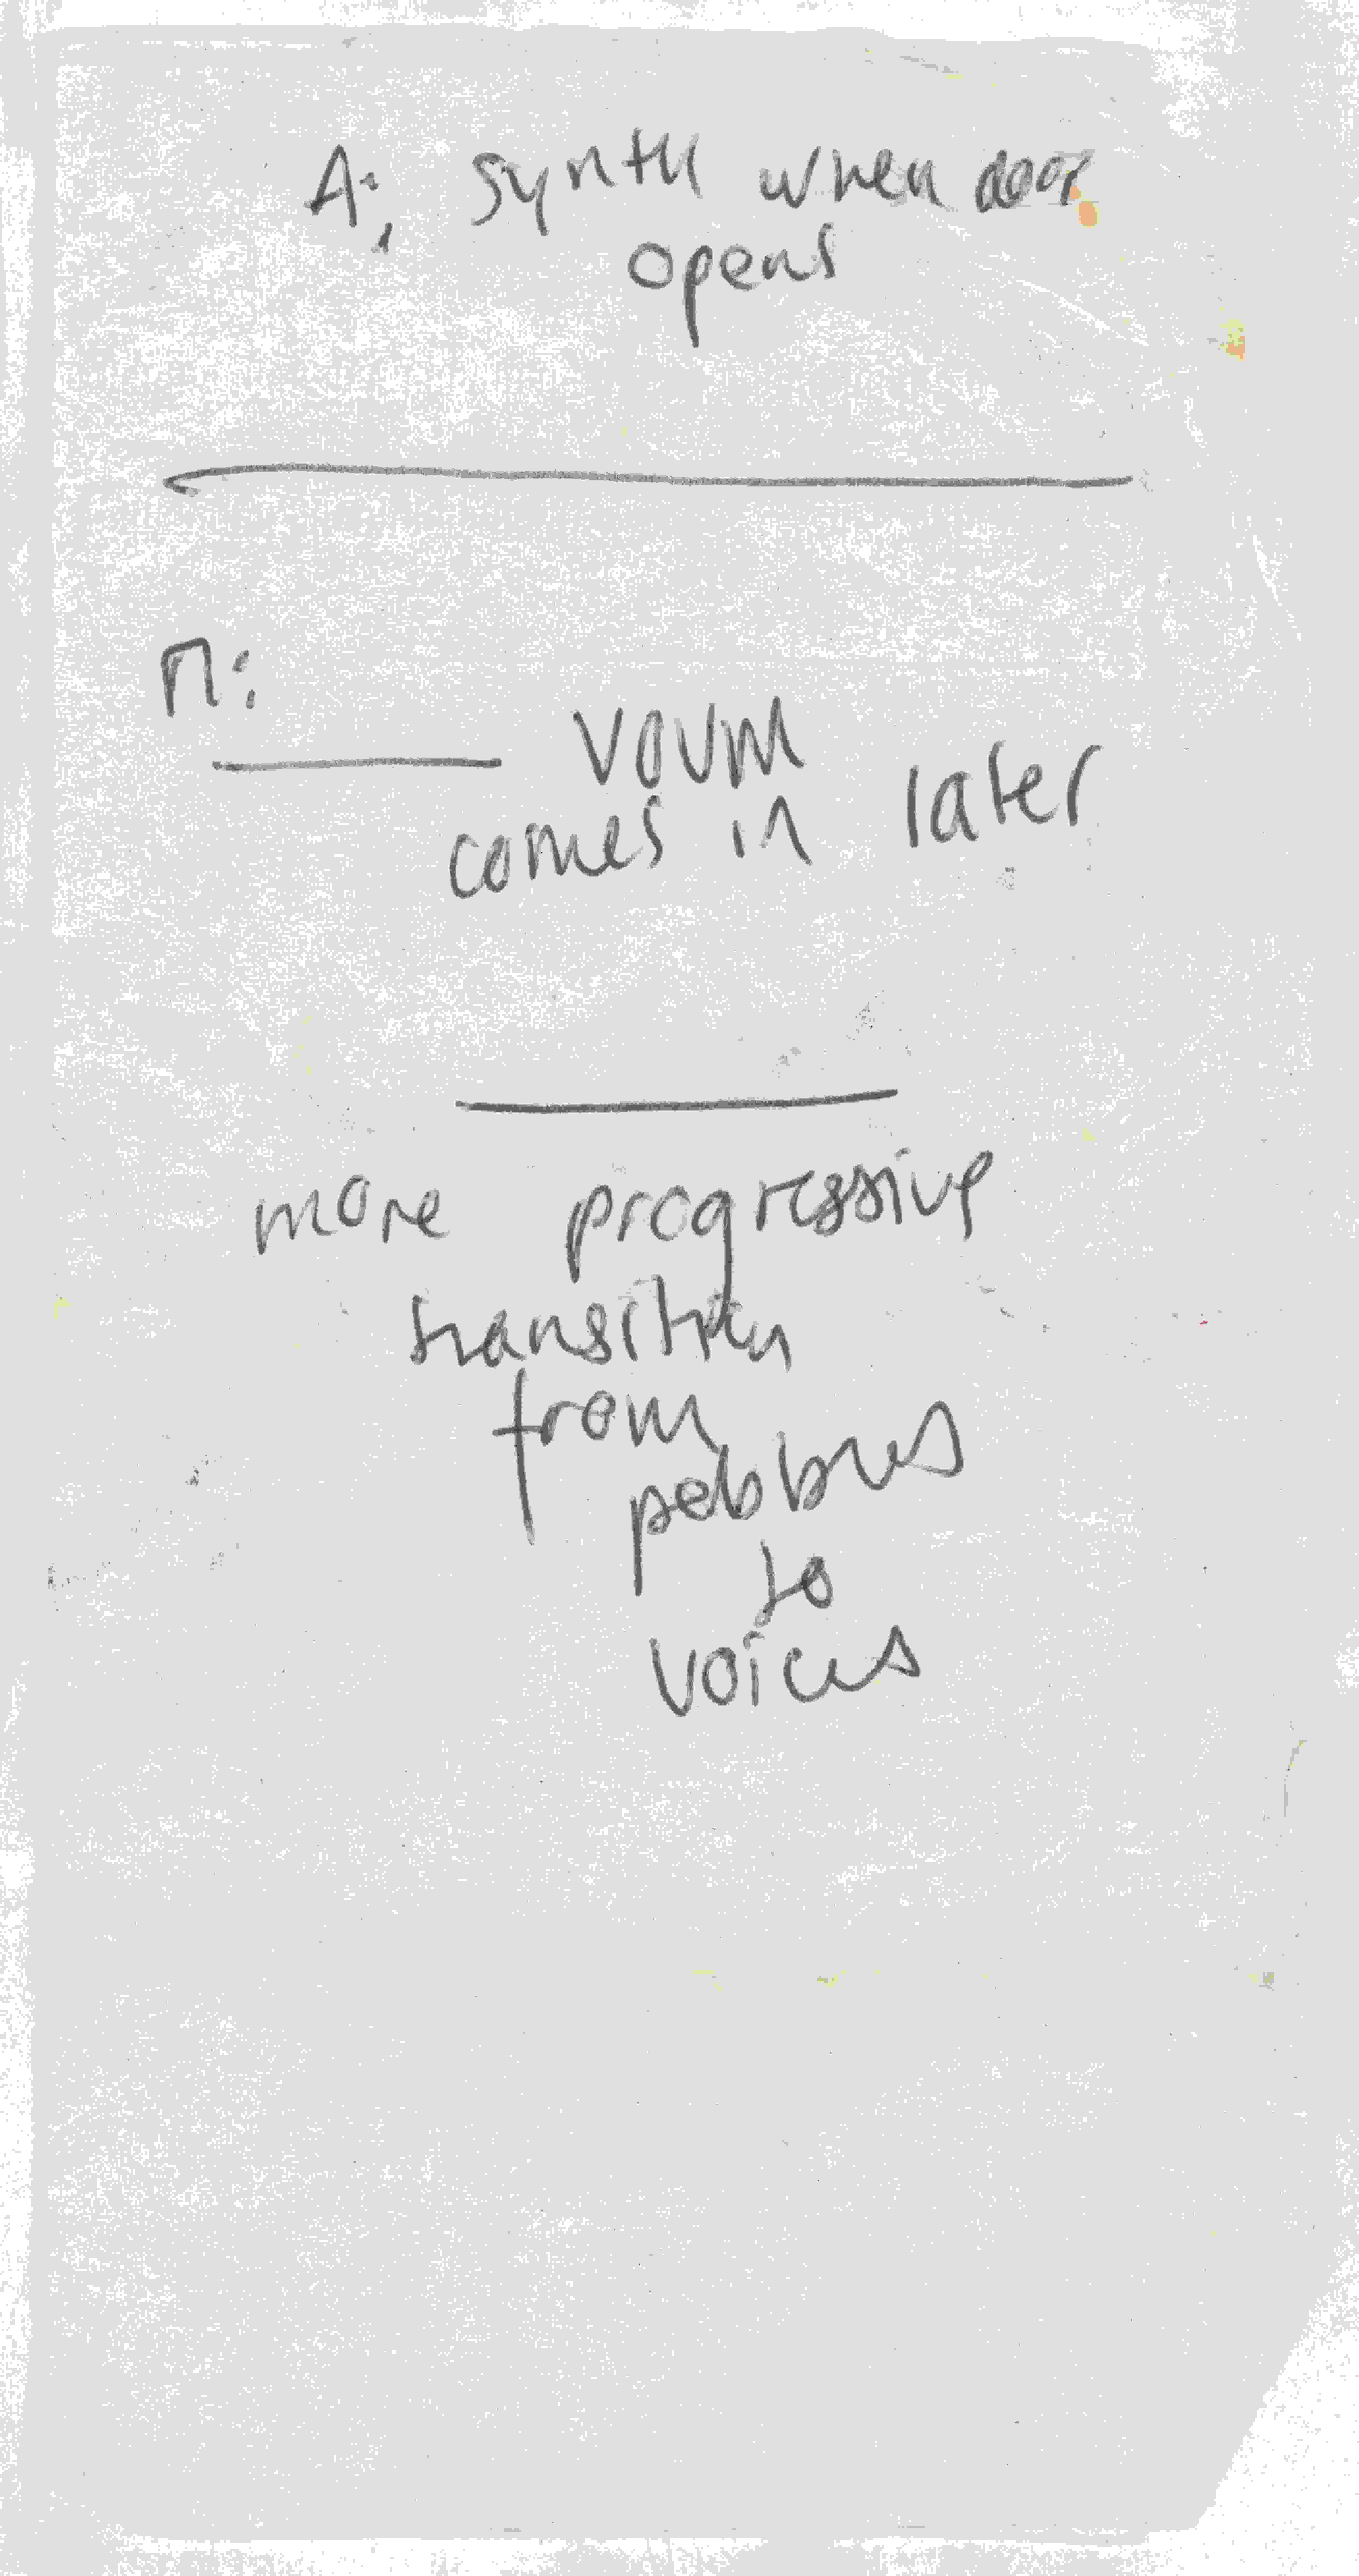 A: synth when door
opens
n:
voum
comes in later
more progressive
transition
from
pebbles
to
voices